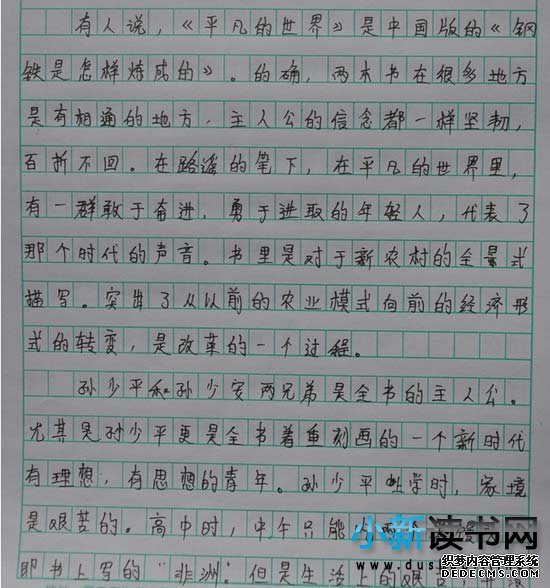 有人说，《平凡的世界》是中国版的《钢
铁是怎样炼成的》。的确，两本书在很多地方
是有相通的地方，主人公的信念都一样坚韧，
百折不回。在路遥的笔下，在平凡的世界里，
有一群敢于奋进，勇于进取的年轻人，代表了
那个时代的声音。书里是对于新农村的全景式
描写。突出了从以前的农业模式向前的经济形
式的转变，是改革的一个过程。
孙少平和孙少安两兄弟是全书的主人公。
尤其是孙少平更是全书着重刻画的一个新时代
有理想，有思想的青年。孙少平上学时，家境
是艰苦的。高中时，中午只能
即书上写的“非洲”但是生活上的艰
小新读书网
www.dus